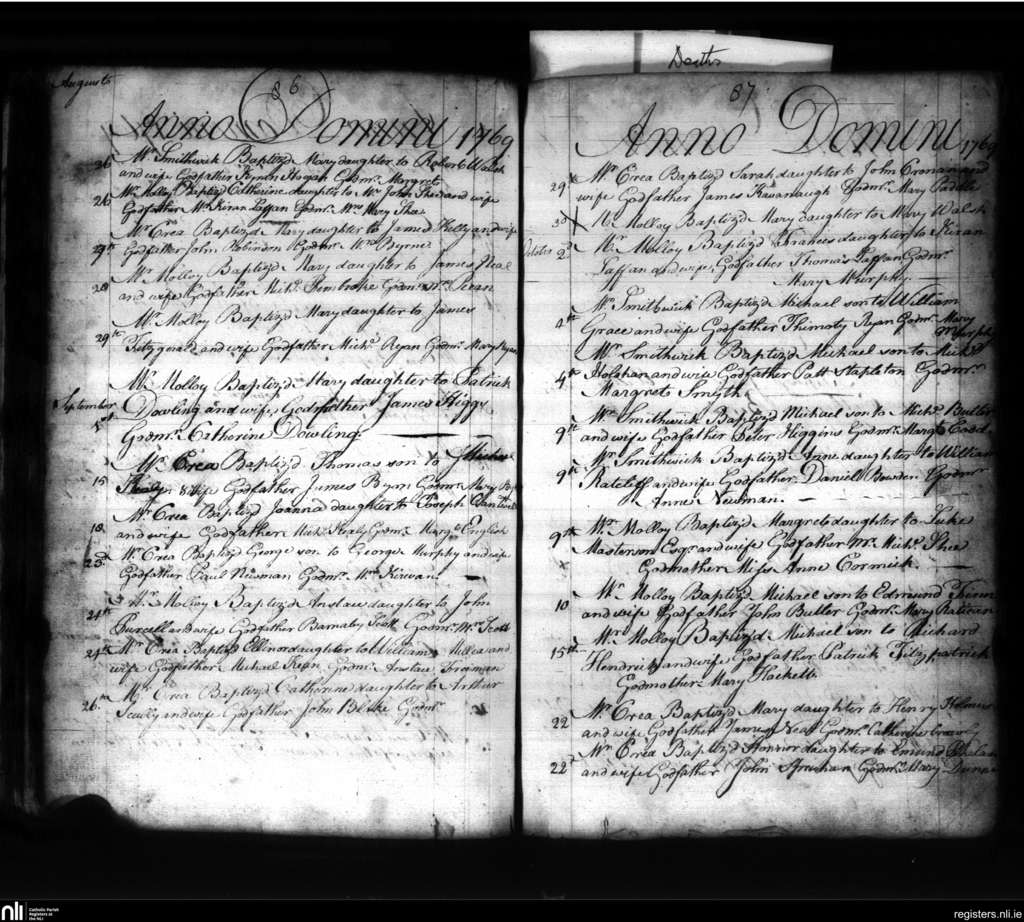 Deaths
Augusts
86
Anno Domini 1769
26 Mr. Smithwick Baptiz'd Mary daughter to Robert Walsh
and wife Godfather Kyran Hogan Godmr. Margret
26 Mr. Molloy Baptiz'd Catherine daughter to Mr. John Shee and wife
Godfather Mr. Kiran Laffan Godmr. Mrs. Mary Shee
27th Mr. Crea Baptiz'd Mary daughter to James Kelly and wife
Godfather John Robinson Godmr. Wm. Byrne
28 Mr. Molloy Baptiz'd Mary daughter to James Neal
and wife Godfather Michl. Pembroke Godmr.
29th Mr. Molloy Baptiz'd Mary daughter to James
Fitzgerald and wife Godfather Michl. Ryan Godmr. Mary
Mr. Molloy Baptiz'd Mary daughter to Patrick
September 1st Dowling and wife, Godfather James Higgs
Godmr. Catherine Dowling
15 Mr. Crea Baptiz'd Thomas son to
& wife Godfather James Byrn Godmr. Mary
18 Mr. Crea Baptiz'd Joanna daughter to Joseph
and wife Godfather Michl. Godmr. Margt. English
23d Mr. Crea Baptiz'd George son to George Murphy and wife
Godfather Paul Newman Godmr. Kirwan
24th Mr. Molloy Baptiz'd Anstace daughter to John
Purcell and wife Godfather Barnaby Scott Godmr. Mrs. Scott
24th Mr. Crea Baptiz'd Ellinor daughter to William Millea and
wife Godfather Michael Ryan Godmr. Anstace
26th Mr. Crea Baptiz'd Catherine daughter to Arthur
Scully and wife Godfather John Blake Godmr.
87
Anno Domini 1769
29 Mr. Crea Baptiz'd Sarah daughter to John Cronan and
wife Godfather James Kavanaugh Godmr. Mary
30 Mr. Molloy Baptiz'd Mary daughter to Mary Walsh
October 2d Mr. Molloy Baptiz'd Frances daughter to Kiran
Laffan and wife, Godfather Thomas Laffan Godmr.
Mary Murphy
4th Mr. Smithwick Baptiz'd Michael son to William
Grace and wife Godfather Thimoty Ryan Godmr. Mary
Murphy
4th Mr. Smithwick Baptiz'd Michael son to Michl.
Holohan and wife Godfather Patt Stapleton Godmr.
Margret Smyth
9th Mr. Smithwick Baptiz'd Michael son to Michl. Butler
and wife Godfather Peter Higgins Godmr. Margt.
9th Mr. Smithwick Baptiz'd Anne daughter to William
Ratcliff and wife Godfather Daniel Bowden Godmr.
Anne Newman
9th Mr. Molloy Baptiz'd Margret daughter to Luke
Masterson Esqr. and wife Godfather Mr. Michl. Shee
Godmother Miss Anne Cormick
10 Mr. Molloy Baptiz'd Michael son to Edmund
and wife Godfather John Butler Godmr. Mary
15th Mr. Molloy Baptiz'd Michael son to Richard
Hendrick and wife Godfather Patrick Fitzpatrick
Godmother Mary Hackett
22 Mr. Crea Baptiz'd Mary daughter to Henry Holmes
and wife Godfather James Neal Godmr. Catherine
22d Mr. Crea Baptiz'd Honnor daughter to Edmund
and wife Godfather John Godmr. Mary Dunne
nli
Catholic Parish
Registers at
the NLI
registers.nli.ie